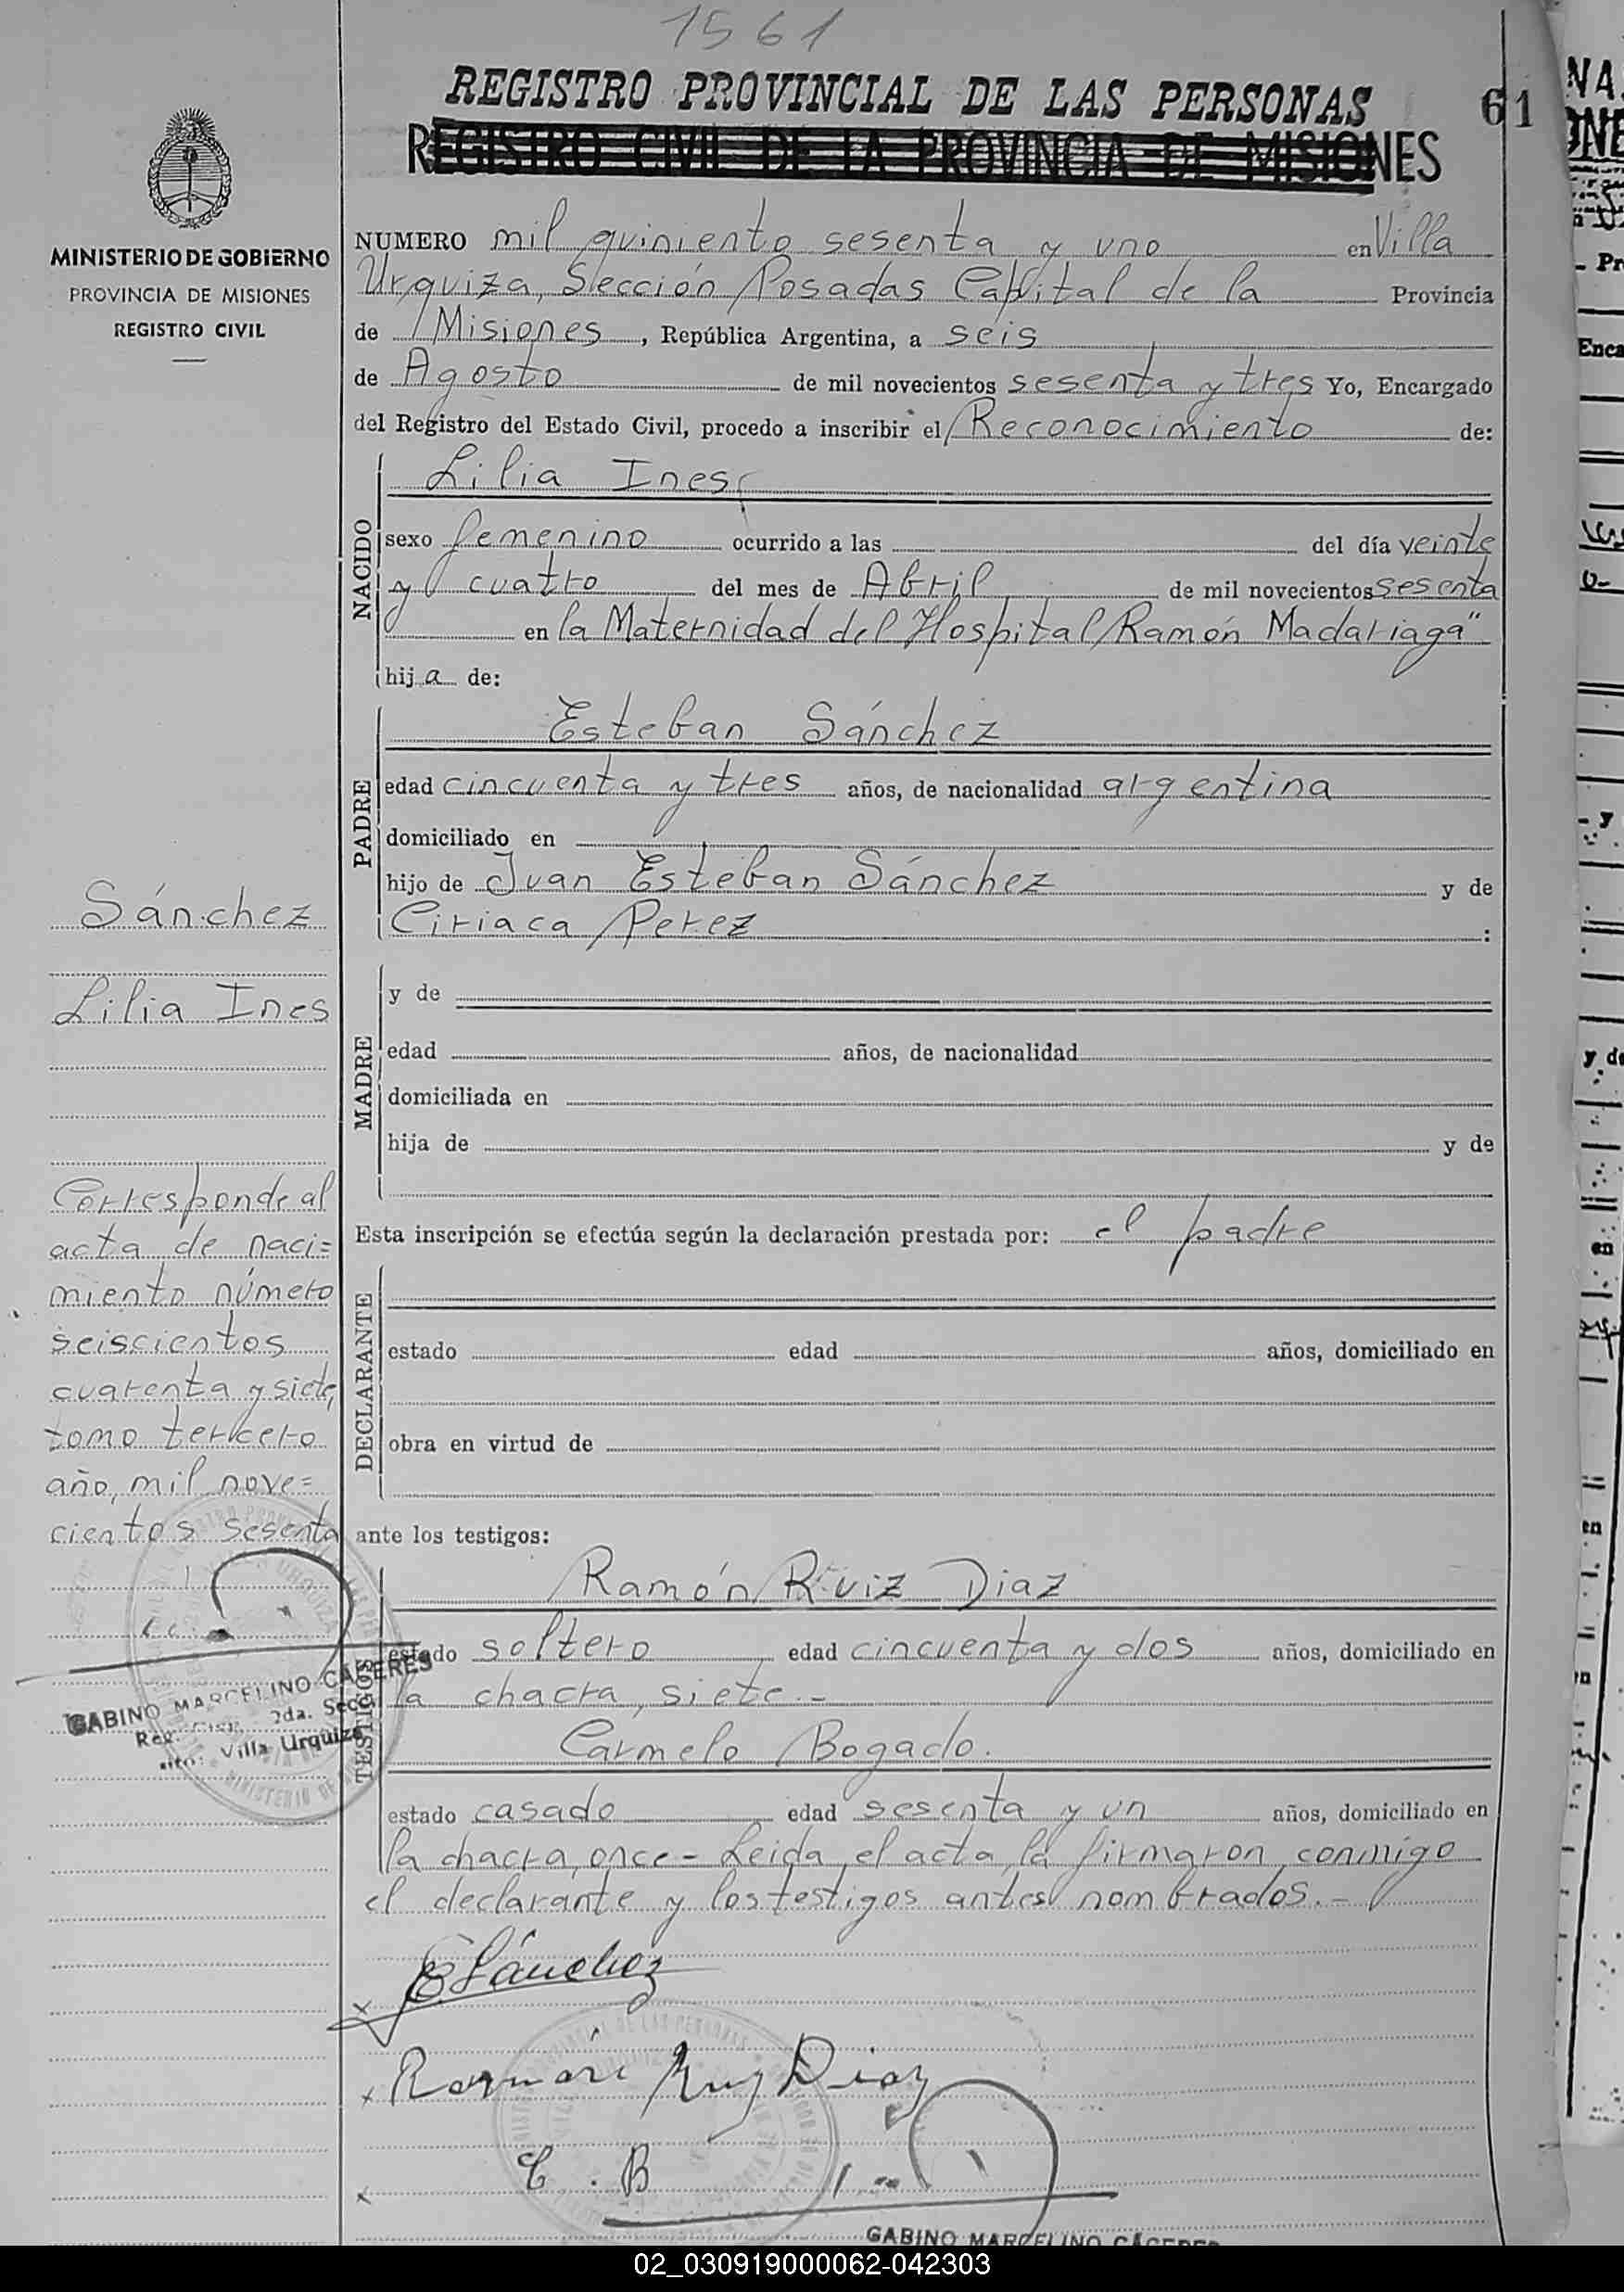 1561
REGISTRO PROVINCIAL DE LAS PERSONAS
61
REGISTRO CIVIL DE LA PROVINCIA DE MISIONES
MINISTERIO DE GOBIERNO
PROVINCIA DE MISIONES
REGISTRO CIVIL
NUMERO mil quiniento sesenta y uno en Villa
Urquiza, Sección Posadas Capital de la Provincia
de Misiones, República Argentina, a seis
de Agosto de mil novecientos sesenta y tres Yo, Encargado
del Registro del Estado Civil, procedo a inscribir el Reconocimiento de:
NACIDO
Lilia Ines
sexo femenino ocurrido a las del día veinte
y cuatro del mes de Abril de mil novecientos sesenta
en la Maternidad del Hospital Ramón Madariaga"
hija de:
PADRE
Esteban Sánchez
edad cincuenta y tres años, de nacionalidad argentina
domiciliado en
hijo de Juan Esteban Sánchez y de
Ciriaca Perez :
MADRE
y de
edad años, de nacionalidad
domiciliada en
hija de y de
Esta inscripción se efectúa según la declaración prestada por: el padre
DECLARANTE
estado edad años, domiciliado en
obra en virtud de
ante los testigos:
TESTIGOS
Ramón Ruiz Diaz
estado soltero edad cincuenta y dos años, domiciliado en
la chacra, siete.-
Carmelo Bogado.
estado casado edad sesenta y un años, domiciliado en
la chacra, once - Leida el acta, la firmaron conmigo
el declarante y los testigos antes nombrados.-
Sánchez
Lilia Ines
Corresponde al
acta de naci=
miento número
seiscientos
cuarenta y siete,
tomo tercero
año, mil nove=
cientos sesenta
GABINO MARCELINO CACERES
2da. Secc
Villa Urquiza
x ESánchez
x Ramón Ruiz Diaz
x C. B
GABINO MARCELINO CÁCERES
02_030919000062-042303